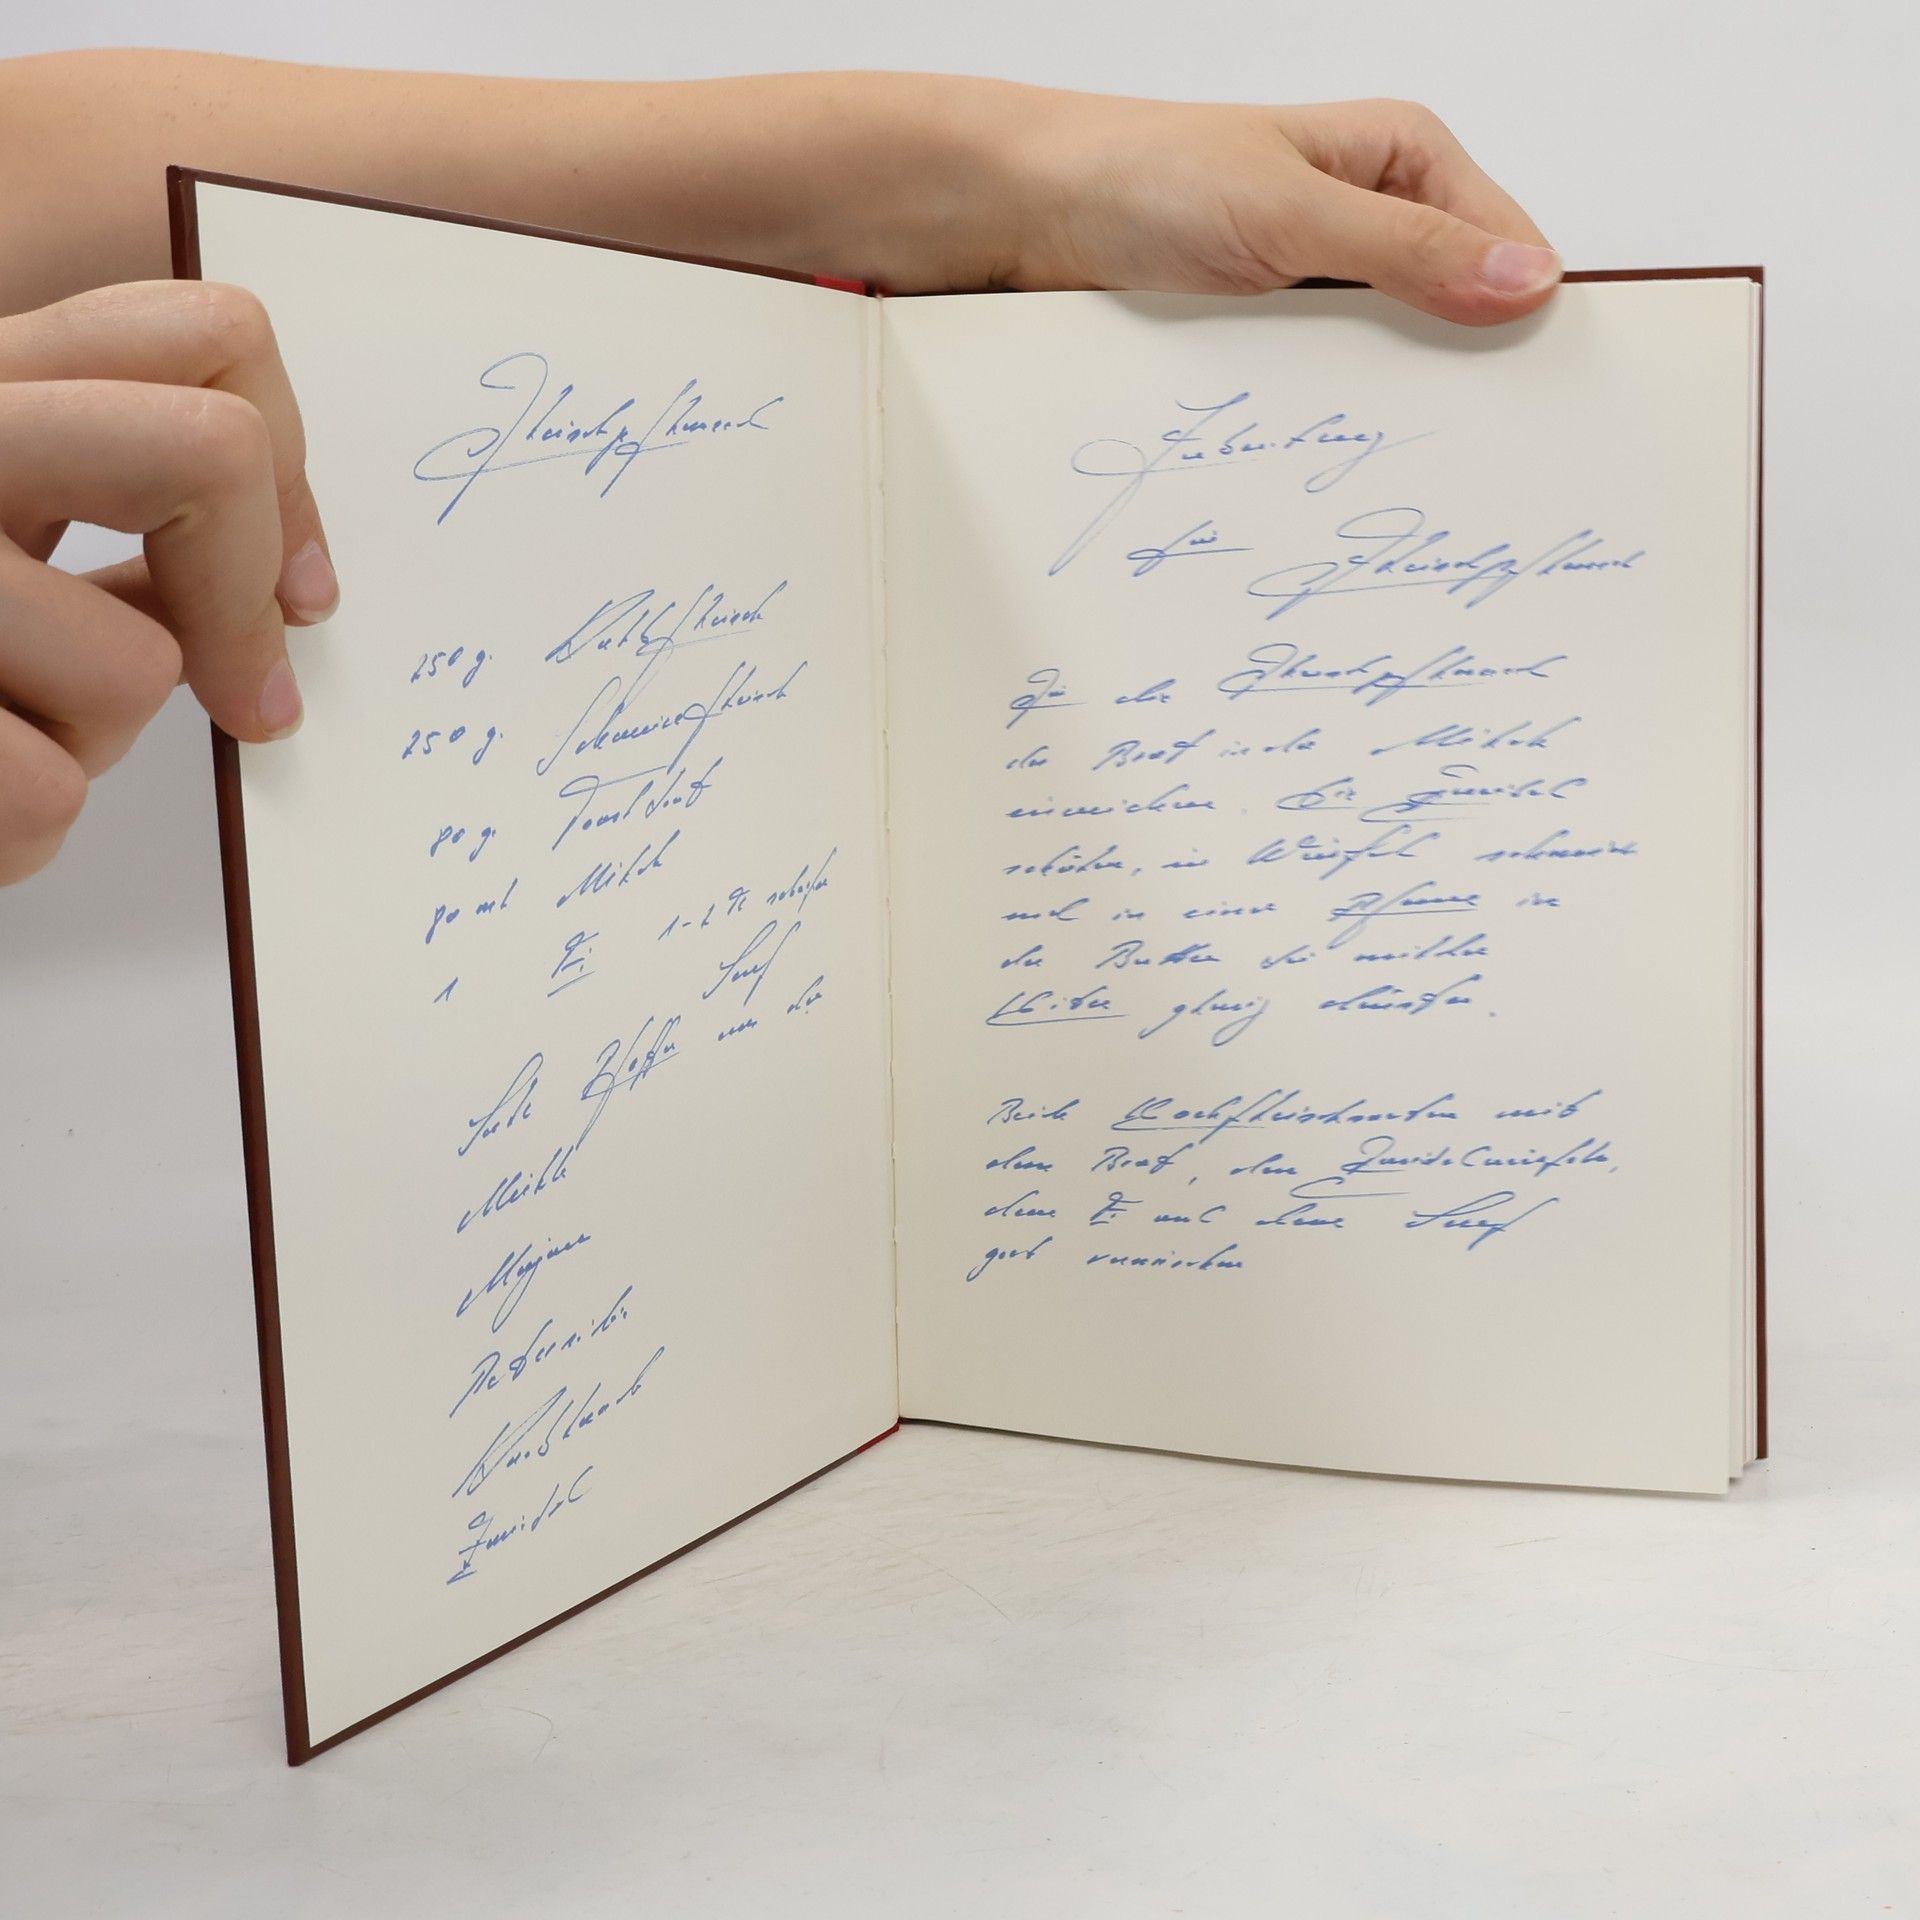 Fleischpflanzerl
250 g. Kalbfleisch
250 g. Schweinefleisch
80 g. Toastbrot
80 ml Milch
1 Ei 1-2 TL scharfer
Senf
Salz Pfeffer aus der
Mühle
Majoran
Petersilie
Knoblauch
Zwiebel
Zubereitung
für Fleischpflanzerl
Für die Fleischpflanzerl
das Brot in der Milch
einweichen. Die Zwiebel
schälen, in Würfel schneiden
und in einer Pfanne in
der Butter bei mittlerer
Hitze glasig dünsten.
Beide Hackfleischsorten mit
dem Brot, den Zwiebelwürfeln,
dem Ei und dem Senf
gut vermischen